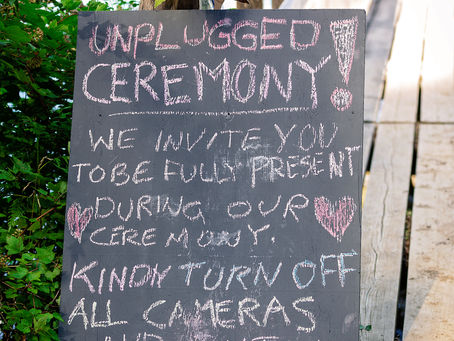 UNPLUGGED
CEREMONY!
WE INVITE YOU
TO BE FULLY PRESENT
DURING OUR
CEREMONY.
KINDY TURN OFF
ALL CAMERAS